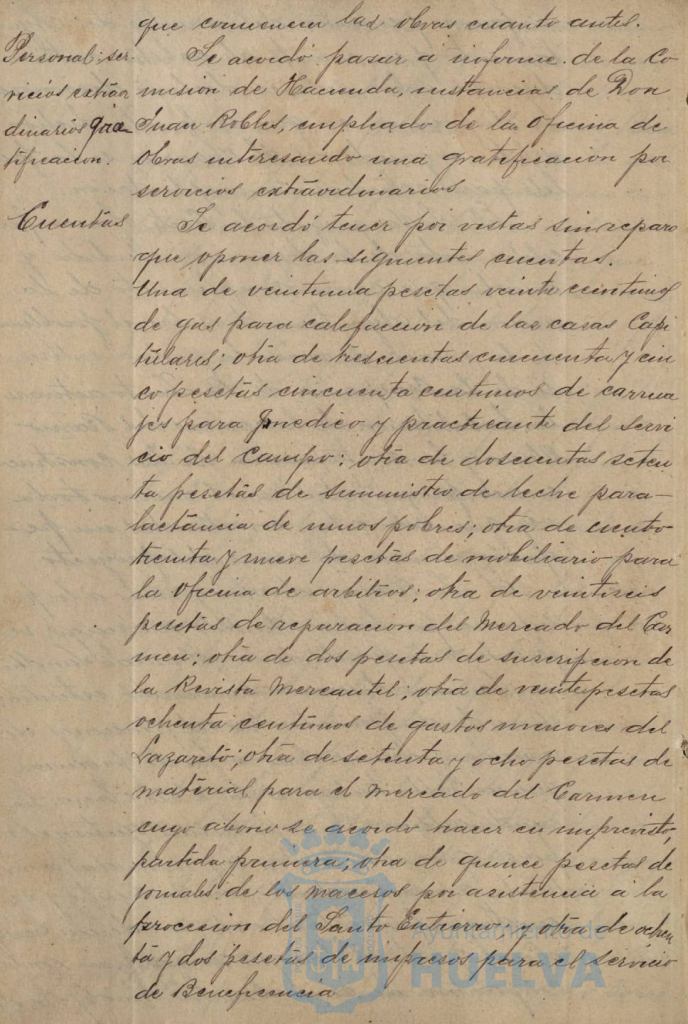 que comiencen las obras cuanto antes.
Personal: ser-
vicios extraor
dinarios gra-
tificacion.
Se acordó pasar á informe de la Co-
mision de Hacienda, instancias de Don
Juan Robles, empleado de la Oficina de
obras interesando una gratificacion por
servicios extraordinarios
Cuentas
Se acordó tener por vistas sin reparo
que oponer las siguientes cuentas.
Una de veintiuna pesetas veinte centimos
de gas para calefaccion de las casas Capi
tulares; otra de trescientas cincuenta y cin
co pesetas cincuenta centimos de carrua
jes para medico y practicante del servi
cio del campo: otra de doscientas seten
ta pesetas de suministro de leche para-
lactancia de niños pobres; otra de ciento
treinta y nueve pesetas de mobiliario para
la oficina de arbitrios; otra de veintiseis
pesetas de reparacion del Mercado del Car
men; otra de dos pesetas de suscripcion de
la Revista Mercantil; otra de veinte pesetas
ochenta centimos de gastos menores del
Lazareto; otra de setenta y ocho pesetas de
material para el mercado del Carmen
cuyo abono se acordo hacer en imprevisto,
partida primera; otra de quince pesetas de
jornales de los maceros por asistencia á la
procesion del Santo Entierro; y otra de ochen
ta y dos pesetas de impresos para el servicio
de Beneficencia
Ayuntamiento de
HUELVA